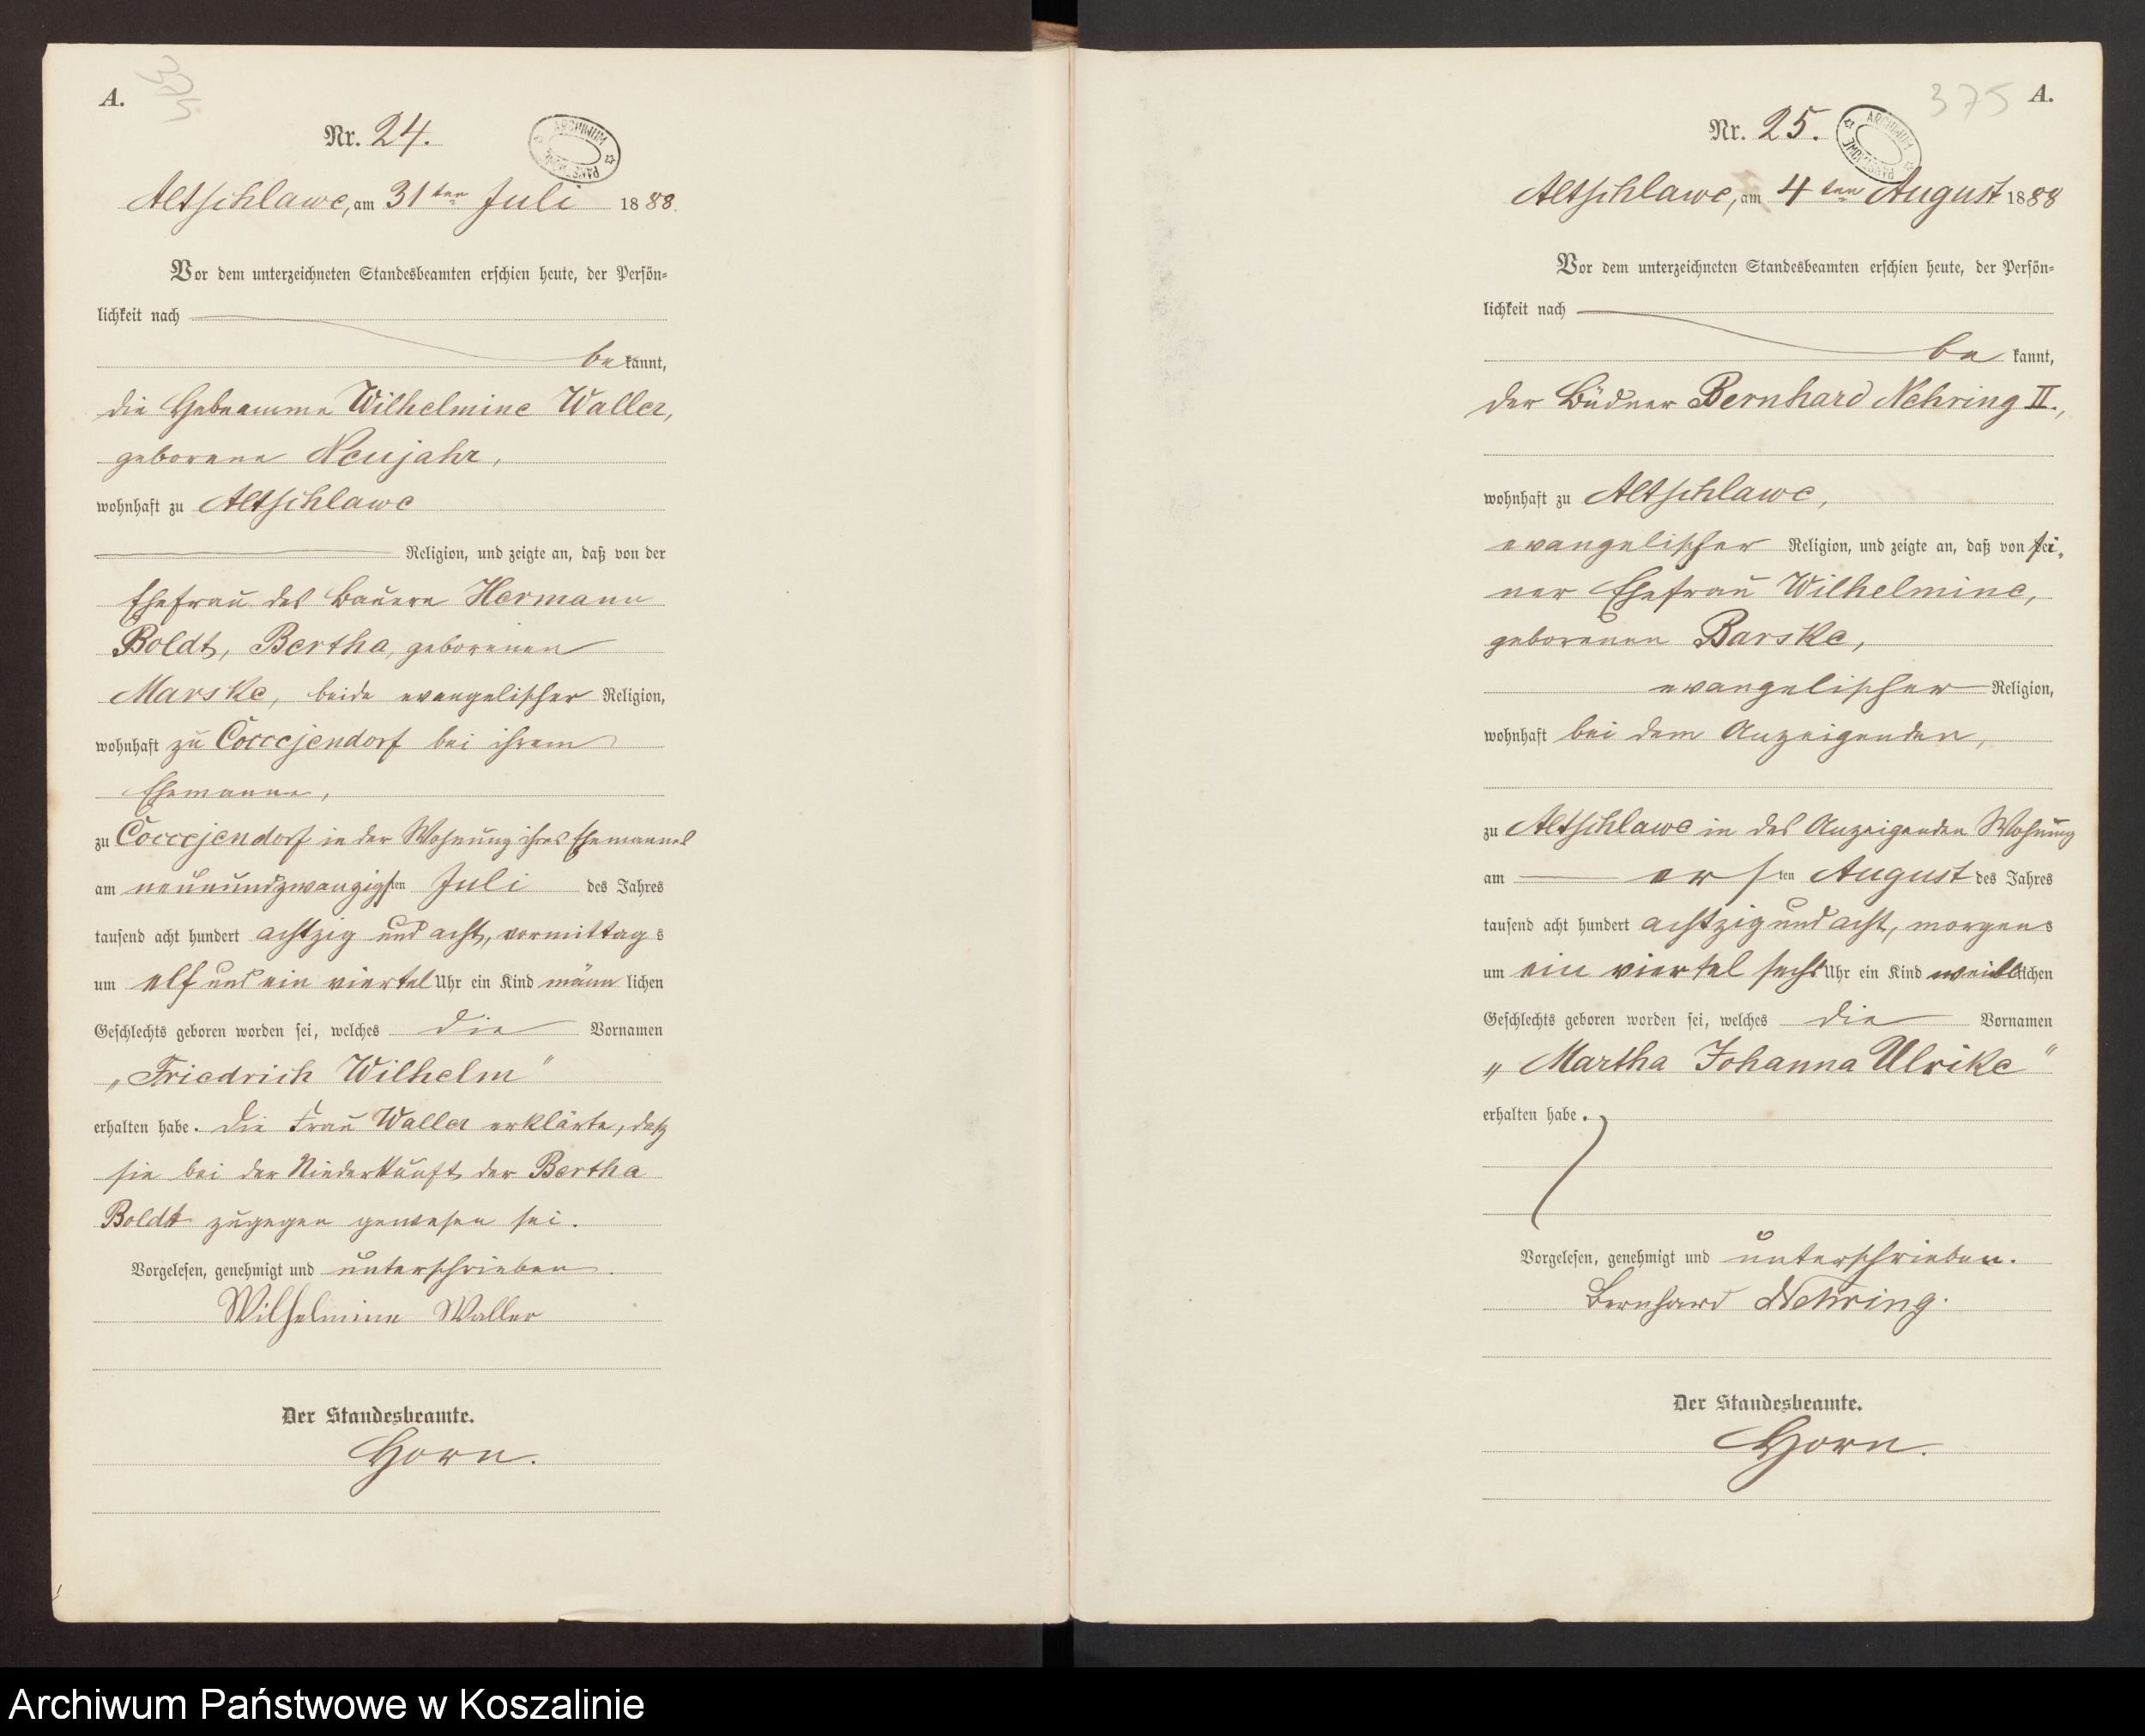 A.
Nr. 24.
ARCHIWUM PAŃSTWOWE
Altschlawe, am 31ten Juli 1888.
Vor dem unterzeichneten Standesbeamten erschien heute, der Persön-
lichkeit nach
bekannt,
die Hebeamme Wilhelmine Waller,
geborene Neujahr,
wohnhaft zu Altschlawe
Religion, und zeigte an, daß von der
Ehefrau des Bauern Hermann
Boldt, Bertha, geborenen
Marske, beide evangelischer Religion,
wohnhaft zu Coccejendorf bei ihrem
Ehemanne,
zu Coccejendorf in der Wohnung ihres Ehemannes
am neunundzwanzigsten Juli des Jahres
tausend acht hundert achtzig und acht, vormittags
um elf und ein viertel Uhr ein Kind männlichen
Geschlechts geboren worden sei, welches die Vornamen
„Friedrich Wilhelm“
erhalten habe. Die Frau Waller erklärte, daß
sie bei der Niederkunft der Bertha
Boldt zugegen gewesen sei.
Vorgelesen, genehmigt und unterschrieben.
Wilhelmine Waller
Der Standesbeamte.
Horn.
375 A.
Nr. 25.
ARCHIWUM PAŃSTWOWE
Altschlawe, am 4ten August 1888
Vor dem unterzeichneten Standesbeamten erschien heute, der Persön-
lichkeit nach
bekannt,
der Büdner Bernhard Nehring II.,
wohnhaft zu Altschlawe,
evangelischer Religion, und zeigte an, daß von sei-
ner Ehefrau Wilhelmine,
geborenen Barske,
evangelischer Religion,
wohnhaft bei dem Anzeigenden,
zu Altschlawe in des Anzeigenden Wohnung
am ersten August des Jahres
tausend acht hundert achtzig und acht, morgens
um ein viertel sechs Uhr ein Kind weiblichen
Geschlechts geboren worden sei, welches die Vornamen
„Martha Johanna Ulrike“
erhalten habe.
Vorgelesen, genehmigt und unterschrieben.
Bernhard Nehring.
Der Standesbeamte.
Horn.
Archiwum Państwowe w Koszalinie